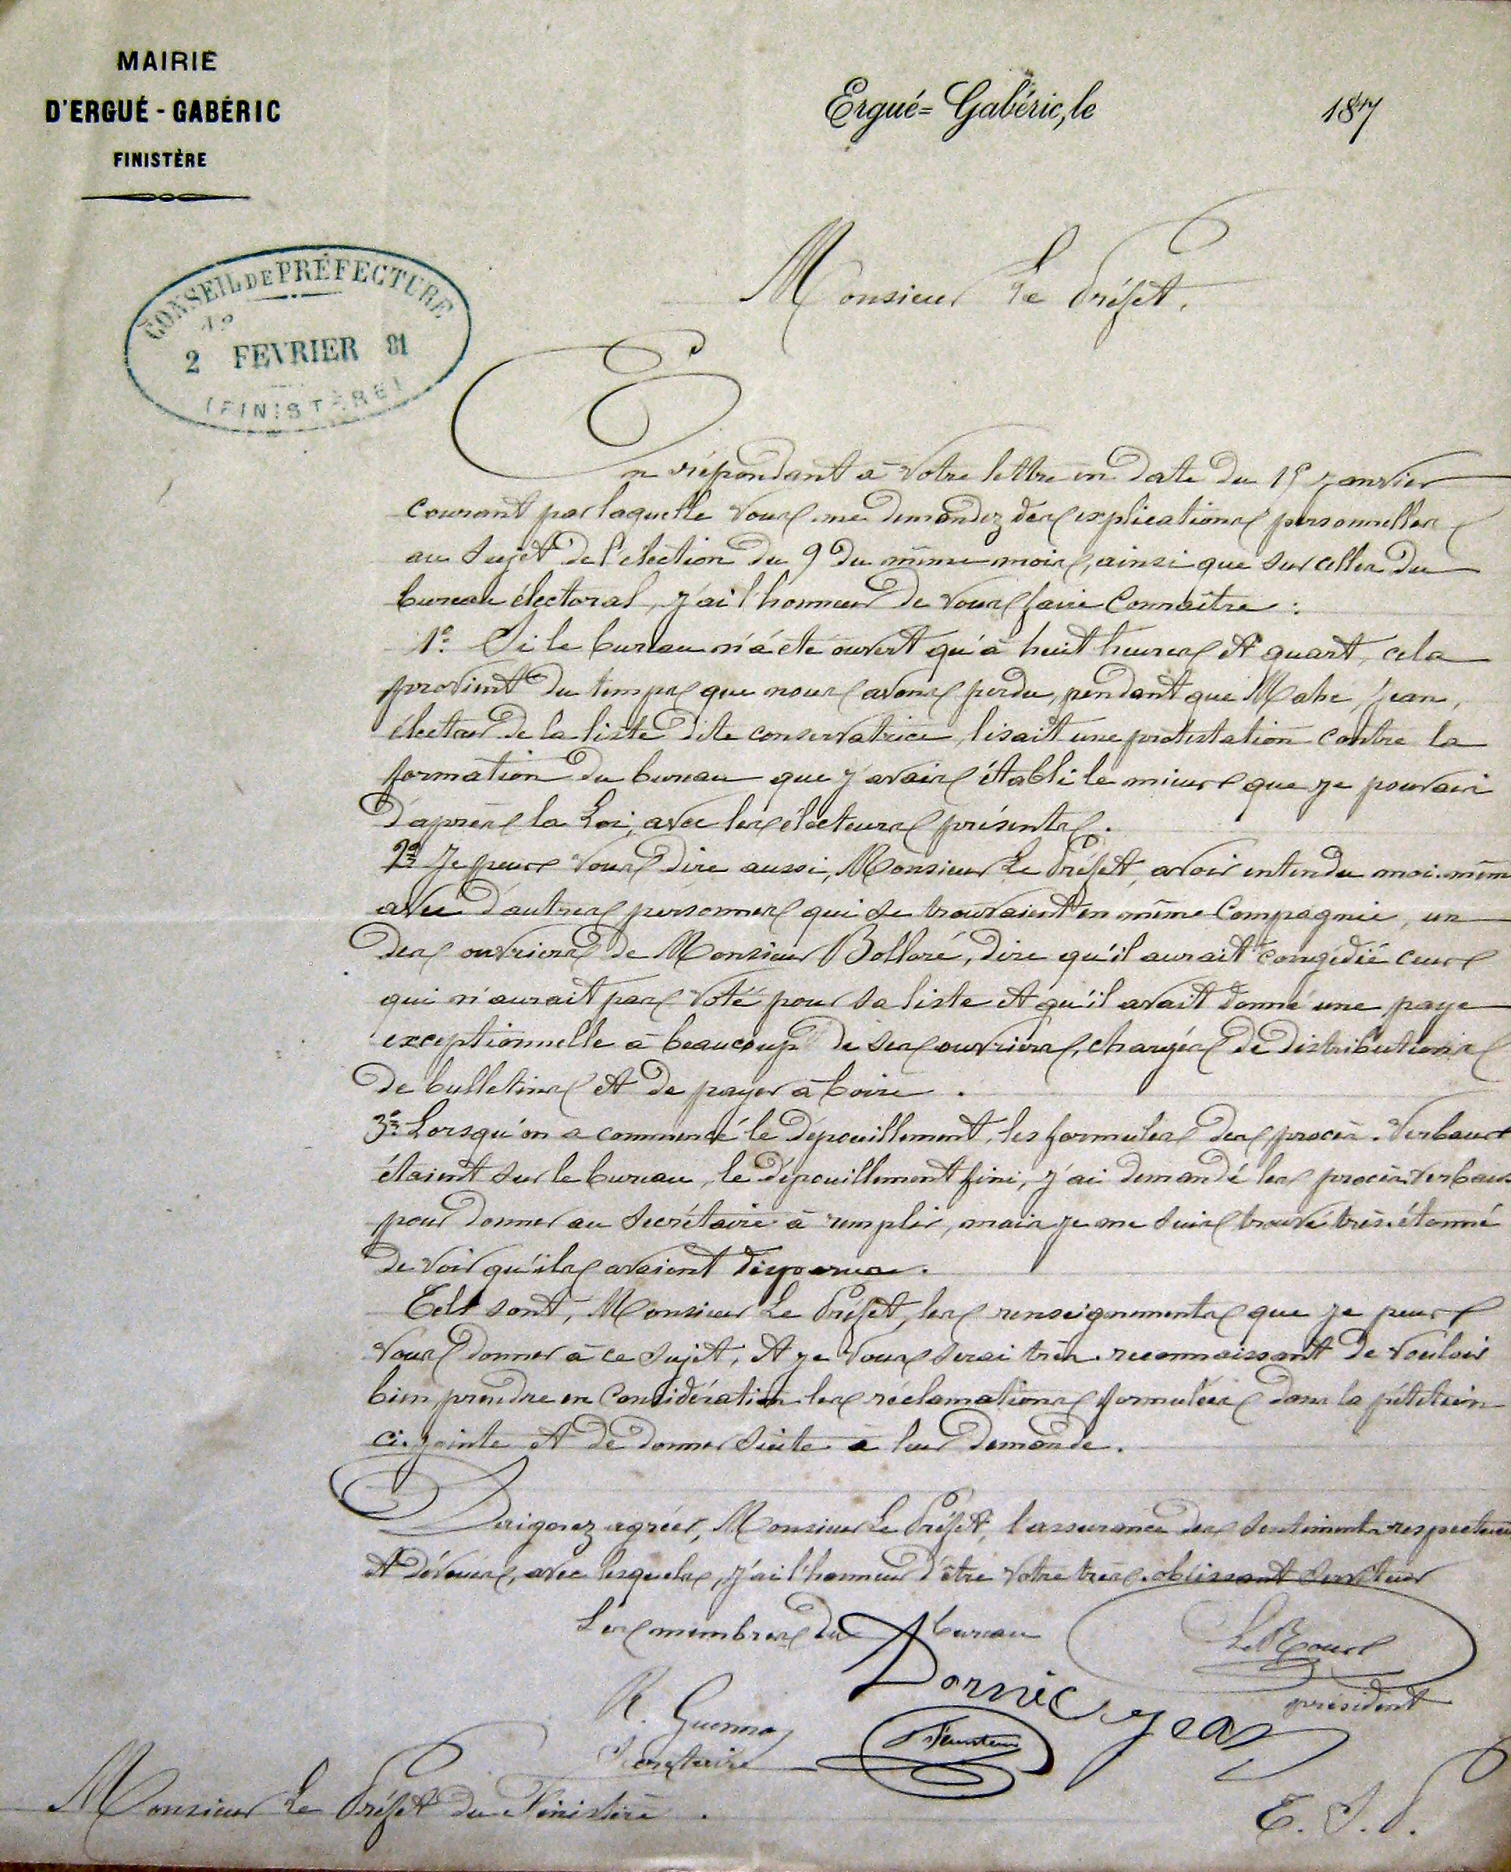 MAIRIE
D'ERGUÉ - GABÉRIC
FINISTÈRE
Ergué=Gabéric, le 187
CONSEIL DE PRÉFECTURE
2 FEVRIER 81
(FINISTÈRE)
Monsieur Le Préfet,
En répondant à votre lettre en date du 15 janvier
courant par laquelle vous me demandez des explications personnelles
au sujet de l'élection du 9 du même mois, ainsi que sur celles du
bureau électoral, j'ai l'honneur de vous faire connaître :
1º Si le bureau n'a été ouvert qu'à huit heures et quart, cela
provient du temps que nous avons perdu, pendant que Mahé, Jean,
électeur de la liste dite conservatrice, lisait une protestation contre la
formation du bureau que j'avais établi le mieux que je pouvais
d'après la Loi, avec les électeurs présents.
2º Je peux vous dire aussi, Monsieur Le Préfet, avoir entendu moi-même
avec d'autres personnes qui se trouvaient en même compagnie, un
des ouvriers de Monsieur Bolloré, dire qu'il aurait congédié ceux
qui n'aurait pas voté pour sa liste et qu'il avait donné une paye
exceptionnelle à beaucoup de ses ouvriers, chargés de distributions
de bulletins et de payer à boire.
3º Lorsqu'on a commencé le dépouillement, les formules des procès-verbaux
étaient sur le bureau, le dépouillement fini, j'ai demandé les procès-verbaux
pour donner au secrétaire à remplir, mais je me suis trouvé très étonné
de voir qu'ils avaient disparus.
Tels sont, Monsieur Le Préfet, les renseignements que je peux
vous donner à ce sujet, et je vous serai très reconnaissant de vouloir
bien prendre en considération les réclamations formulées dans la pétition
ci-jointe et de donner suite à leur demande.
Daignez agréer, Monsieur Le Préfet, l'assurance des sentiments respectueux
et dévoués, avec lesquels, j'ai l'honneur d'être votre très obéissant serviteur
Les membres du bureau
Le Roux
président
Dornic Jean
R. Guennou
Secrétaire
Feunteun
Monsieur Le Préfet du Finistère.
T. S. P.